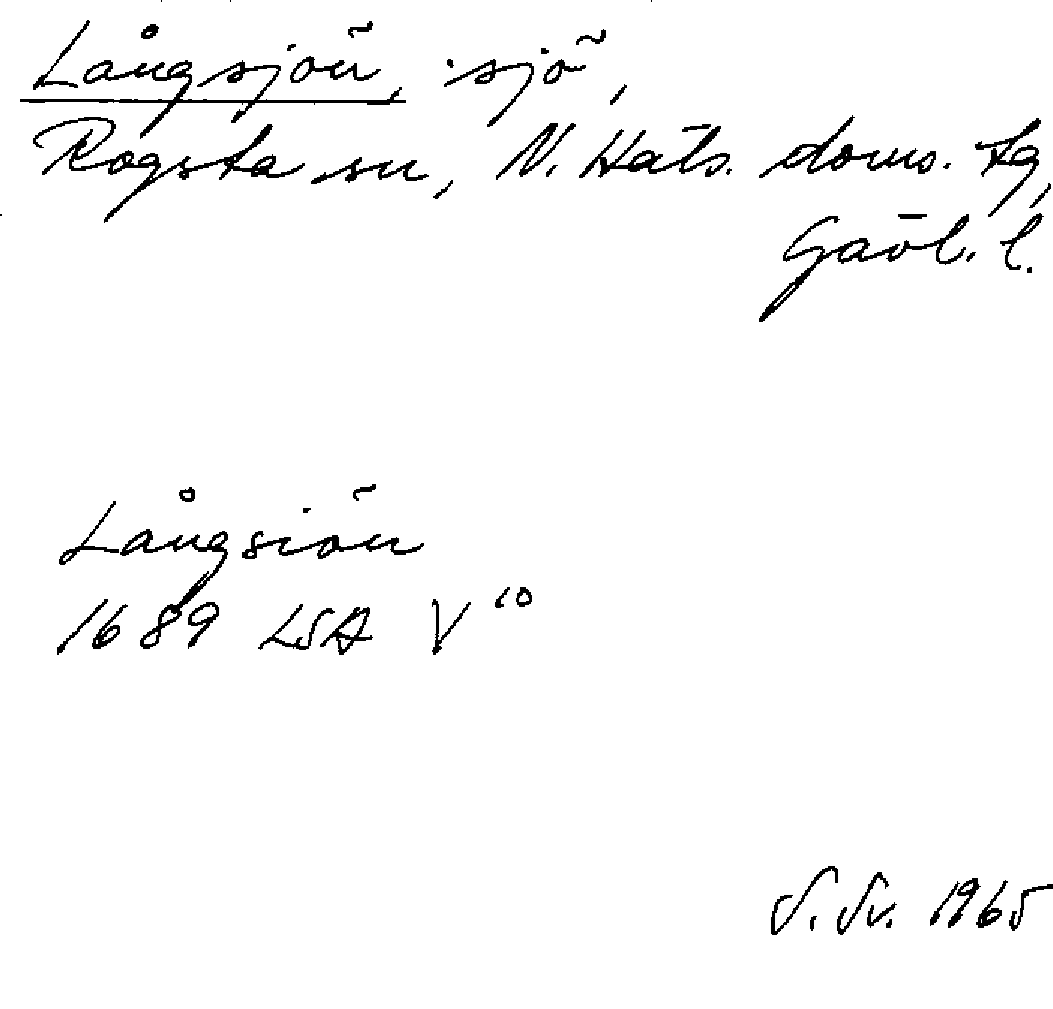 Långsjön, sjö,
Rogsta sn, N. Häls. doms. tg,
Gävl. l.
Långsiön
1689 LSA V 10
S. Sv. 1965